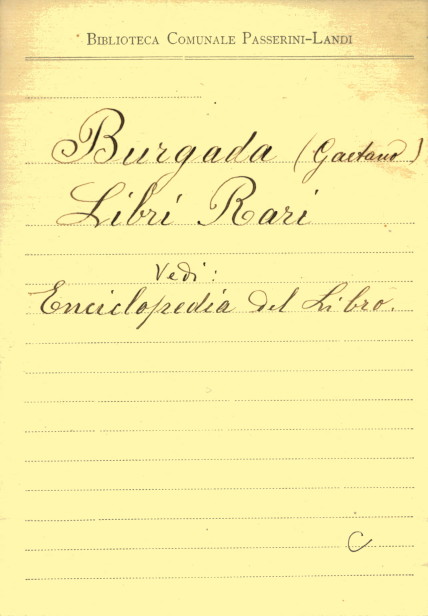 BIBLIOTECA COMUNALE PASSERINI-LANDI
Burgada (Gaetano)
Libri Rari
Vedi:
Enciclopedia del Libro.
C